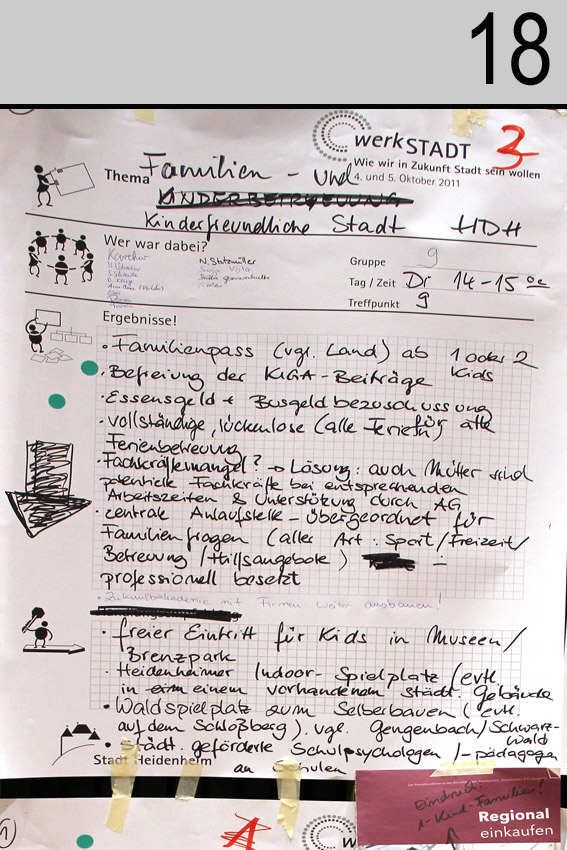 18
werkSTADT
3
Wie wir in Zukunft Stadt sein wollen
4. und 5. Oktober 2011
Thema Familien - und
KINDERBETREUUNG
Kinderfreundliche Stadt HDH
Wer war dabei?
N. Stützmüller
Gruppe 9
Tag / Zeit Di 14-15 00
Treffpunkt 9
Ergebnisse!
• Familienpass (vgl. Land) ab 1 oder 2
Kids
• Befreiung der KIGA-Beiträge
• Essensgeld + Busgeld bezuschussung
• vollständige, lückenlose (alle Ferien) für alle
Ferienbetreuung
• Fachkräftemangel? → Lösung: auch Mütter sind
potentielle Fachkräfte bei entsprechenden
Arbeitszeiten & Unterstützung durch AG
• zentrale Anlaufstelle - übergeordnet für
Familienfragen (aller Art: Sport/Freizeit/
Betreuung/Hilfsangebote) -
professionell besetzt
• Zukunftsakademie mit Firmen weiter ausbauen!
• freier Eintritt für Kids in Museen/
Brenzpark
• Heidenheimer Indoor-Spielplatz (evtl.
in einem vorhandenem städt. Gebäude
• Waldspielplatz zum Selberbauen (evtl.
auf dem Schloßberg). vgl. Gengenbach/Schwarz-
wald
• städt. geförderte Schulpsychologen /-pädagogen
an Schulen
Stadt Heidenheim
Eindruck:
1-Kind-Familien!
Regional
einkaufen
1